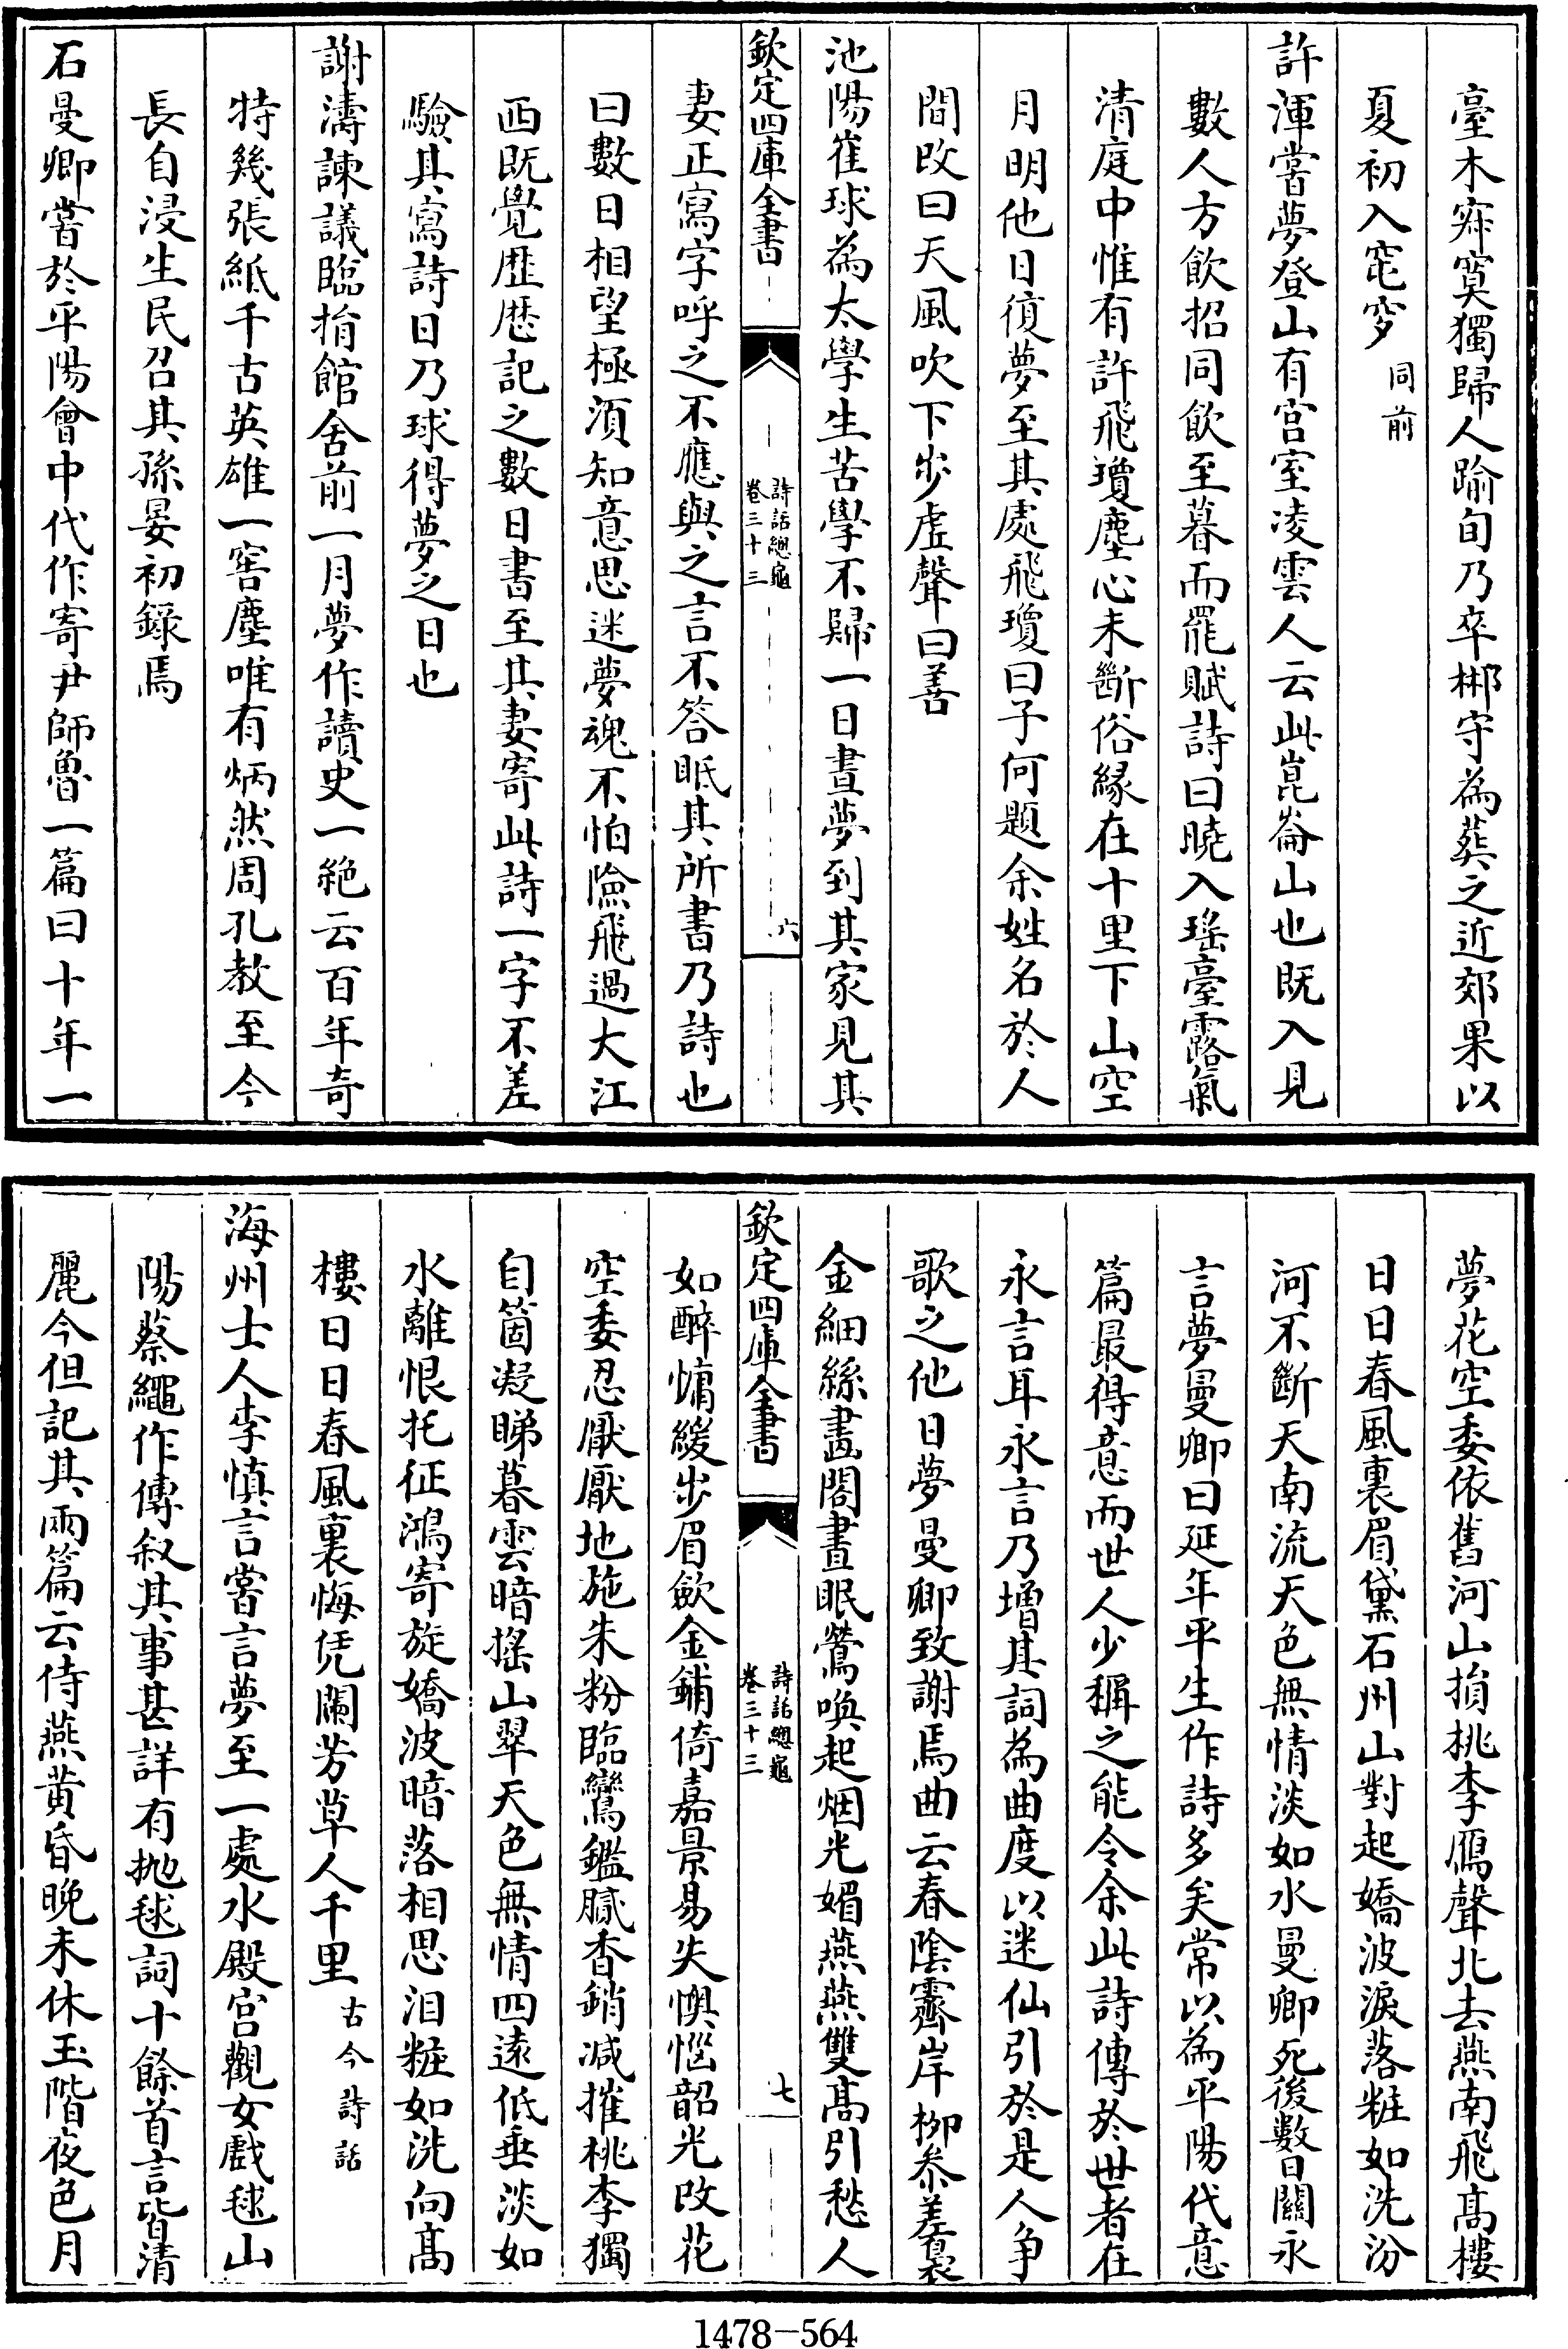 臺木寂寞獨歸人踰旬乃卒郴守為葬之近郊果以
夏初入窀穸同前
許渾嘗夢登山有宫室凌雲人云此崑崙山也既入見
數人方飲招同飲至暮而罷賦詩曰曉入瑤臺露氣
清庭中惟有許飛瓊塵心未斷俗緣在十里下山空
月明他日復夢至其處飛瓊曰子何題余姓名於人
間改曰天風吹下步虛聲曰善
池陽崔球為太學生苦學不歸一日晝夢到其家見其
欽定四庫全書
詩話總龜
卷三十三
六
妻正寫字呼之不應與之言不答眡其所書乃詩也
曰數日相望極須知意思迷夢魂不怕險飛過大江
西既覺歴歴記之數日書至其妻寄此詩一字不差
驗其寫詩日乃球得夢之日也
謝濤諫議臨捐館舍前一月夢作讀史一絶云百年奇
特幾張紙千古英雄一窖塵唯有炳然周孔教至今
長自浸生民召其孫晏初録焉
石曼卿嘗於平陽會中代作寄尹師魯一篇曰十年一
夢花空委依舊河山損桃李鴈聲北去燕南飛髙樓
日日春風裏眉黛石州山對起嬌波淚落粧如洗汾
河不斷天南流天色無情淡如水曼卿死後數日關永
言夢曼卿曰延年平生作詩多矣常以為平陽代意
篇最得意而世人少稱之能令余此詩傳於世者在
永言耳永言乃增其詞為曲度以迷仙引於是人争
歌之他日夢曼卿致謝焉曲云春陰霽岸柳參差裊
金細絲畵閣晝眠鶯喚起烟光媚燕燕雙髙引愁人
欽定四庫全書
詩話總龜
卷三十三
七
如醉慵緩步眉斂金鋪倚嘉景易失懊惱韶光改花
空委忍厭厭地施朱粉臨鸞鑑膩香銷減摧桃李獨
自箇凝睇暮雲暗摇山翠天色無情四逺低垂淡如
水離恨托征鴻寄旋嬌波暗落相思泪粧如洗向髙
樓日日春風裏悔凭闌芳草人千里古今詩話
海州士人李慎言嘗言夢至一處水殿宮觀女戲毬山
陽蔡繩作傳叙其事甚詳有抛毬詞十餘首言皆清
麗今但記其兩篇云侍燕黄昏晚未休玉階夜色月
1478-564